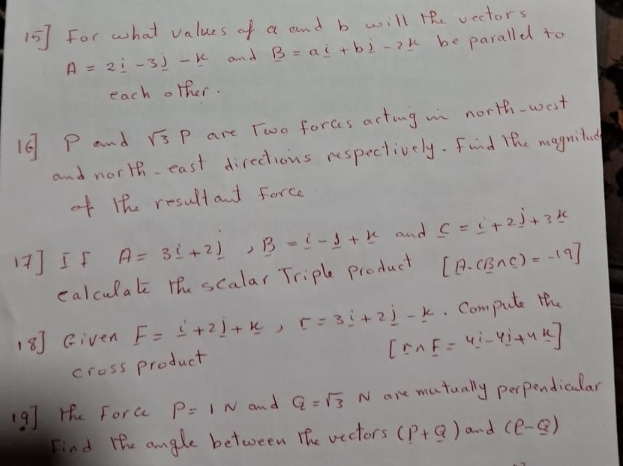 15] For what values of a and b will the vectors
A = 2i - 3j - k and B = ai + bj - 2k be parallel to
each other.
16] P and √3 P are Two forces acting in north-west
and north-east directions respectively. Find the magnitude
of the resultant force
17] If A = 3i + 2j , B = i - j + k and C = i + 2j + 3k
calculate the scalar Triple product [A.(B∧C) = -19]
18] Given F = i + 2j + k , r = 3i + 2j - k . Compute the
cross product [r∧F = 4i - 4j + 4k]
19] the Force P = 1N and Q = √3 N are mutually perpendicular
Find the angle between the vectors (P+Q) and (P-Q)